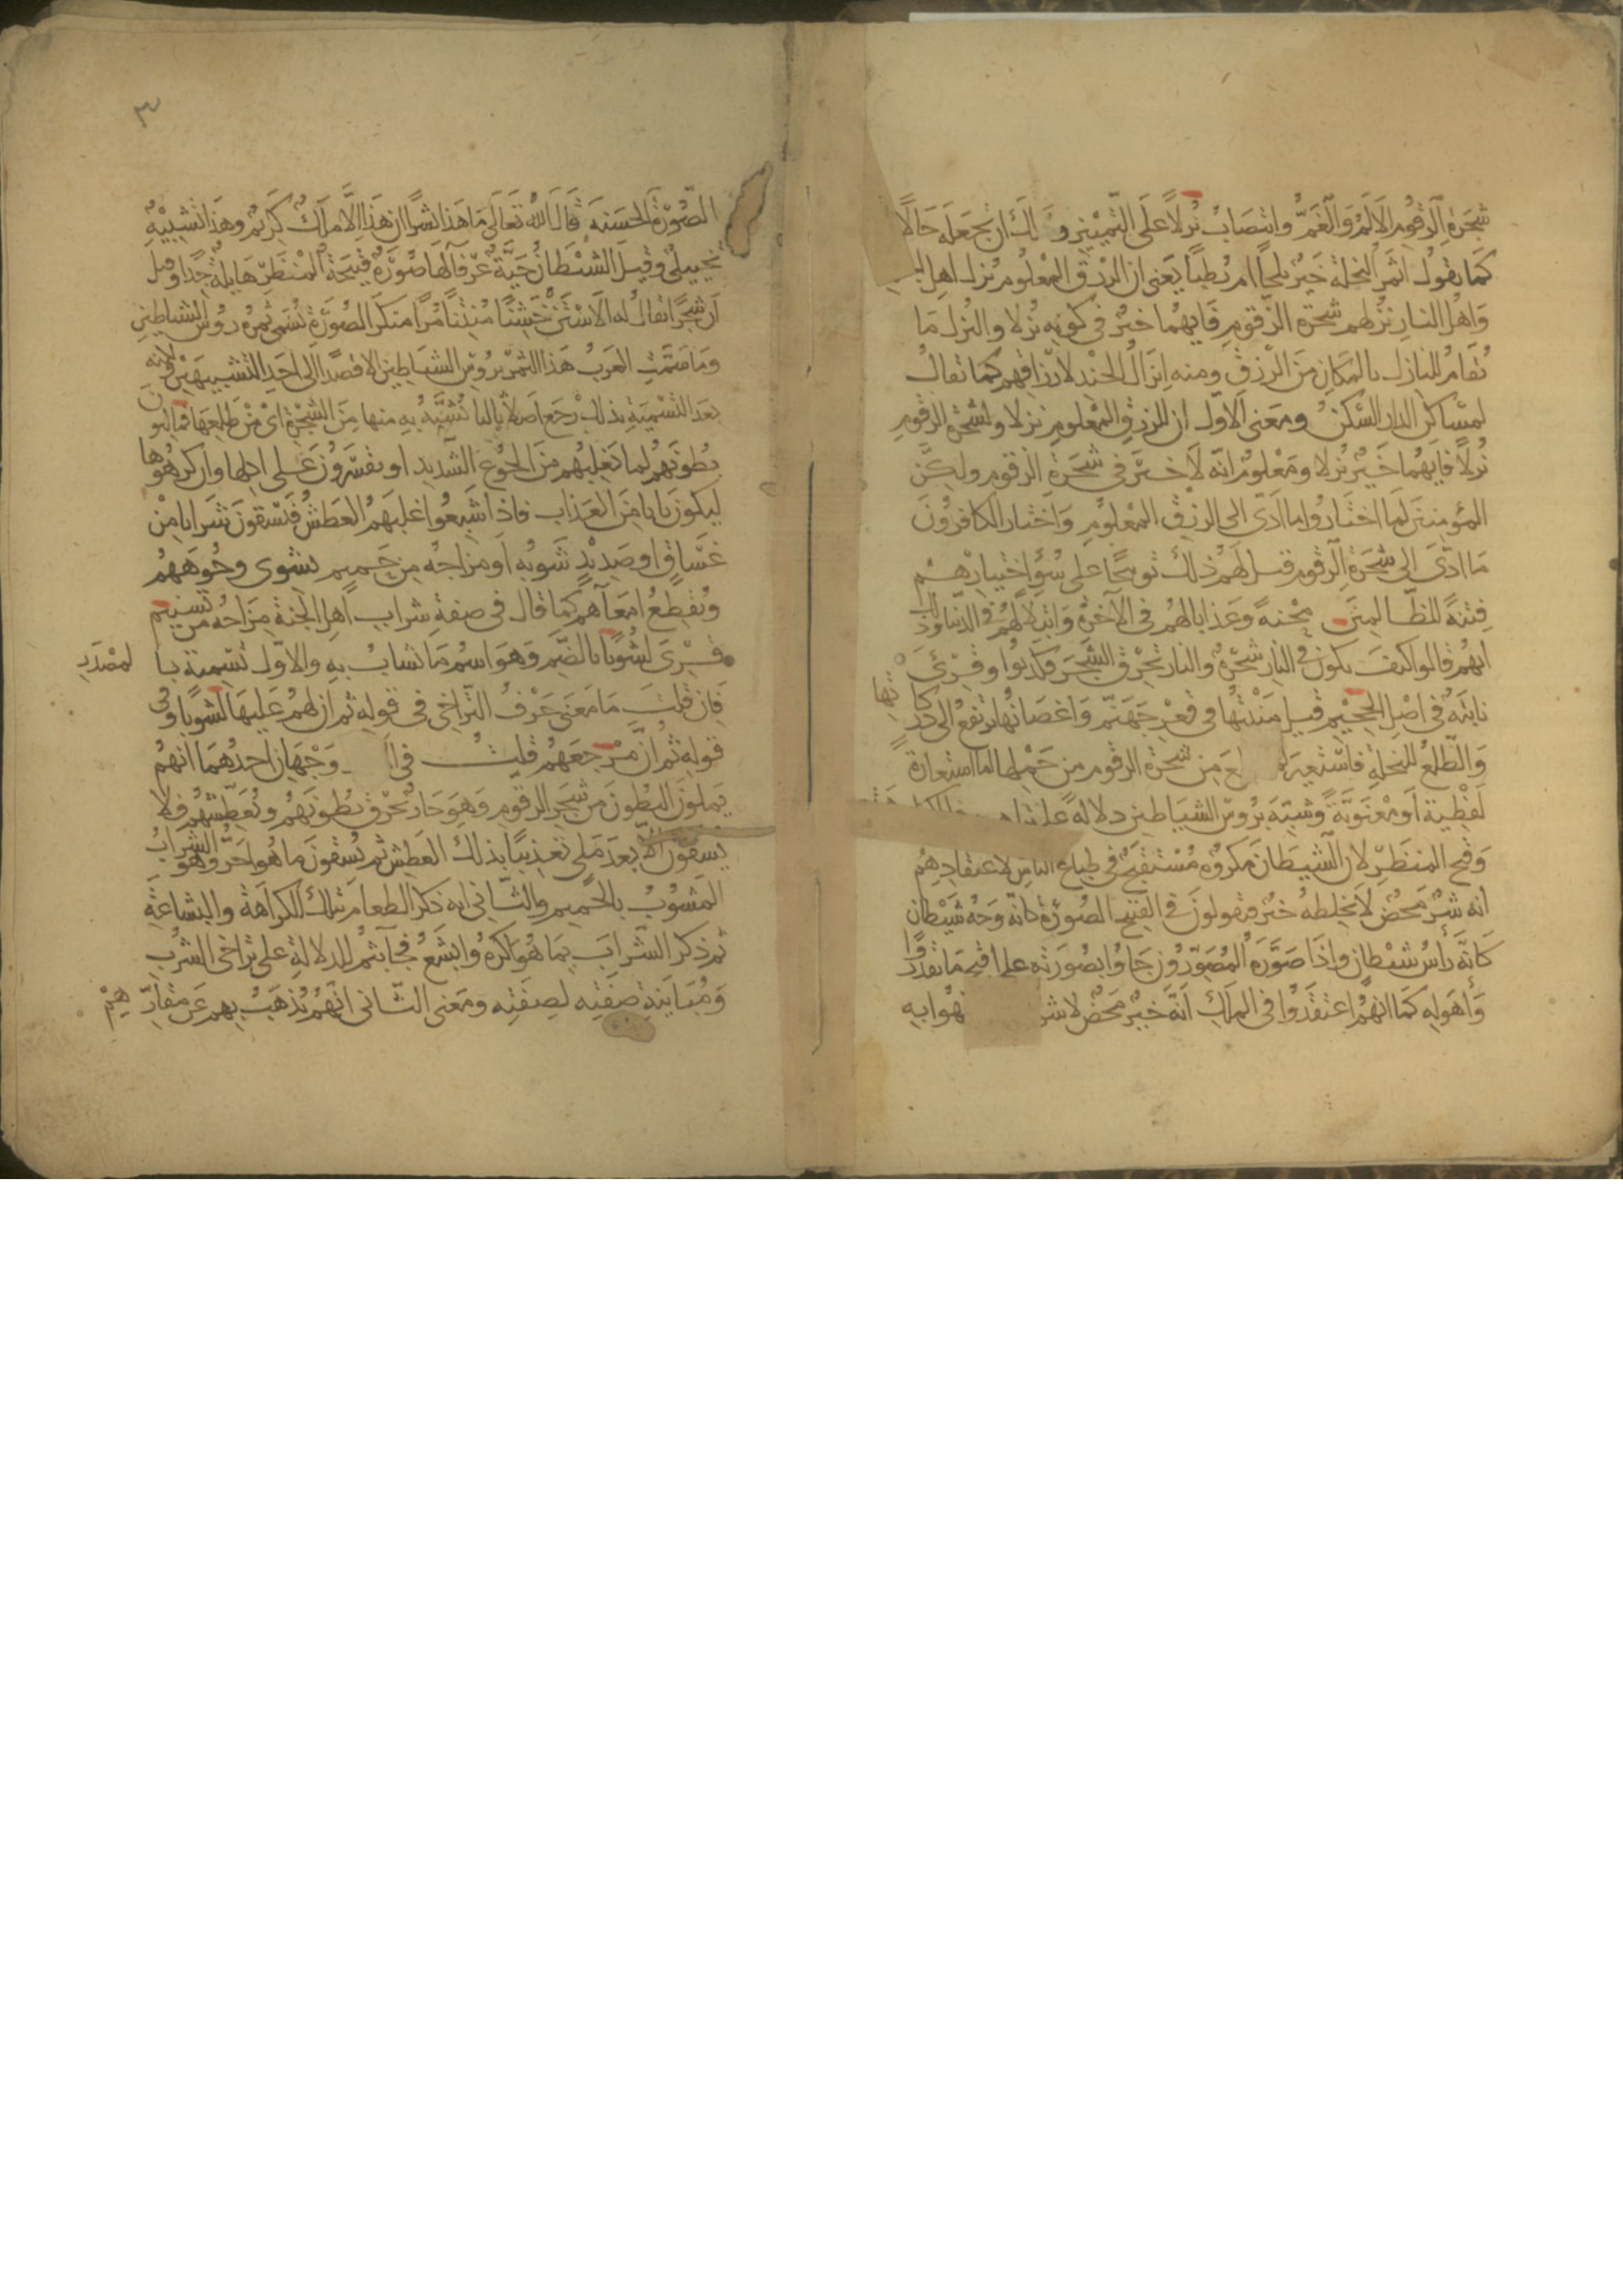 شجرة الزقوم الالم والغم وانتصاب نزلا على التمييز و لك ان تجعله حالا
كما تقول اثمر النخلة خير بلحا ام رطبا يعنى ان الرزق المعلوم نزل اهل
واهل النار نزلهم شجرة الزقوم فايهما خير فى كونه نزلا والنزل ما
تقام للنازل بالمكان من الرزق ومنه انزال الجند لارزاقهم كما تقال
لمساكن الدار السكن ومعنى الاول ان للرزق المعلوم نزلا ولشجرة الزقوم
نزلا فايهما خير نزلا ومعلوم انه لا خير فى شجرة الزقوم ولكن
المؤمنين لما اختاروا ما ادى الى الرزق المعلوم واختار الكافرون
ما ادى الى شجرة الزقوم قيل لهم ذلك توبيخا على سوء اختيارهم
فتنة للظالمين محنة وعذابا لهم فى الآخرة وابتلاء لهم فى الدنيا وذلك
انهم قالوا كيف يكون فى النار شجرة والنار تحرق الشجر فكذبوا وقرئ
نابتة فى اصل الجحيم قيل منبتها فى قعر جهنم واغصانها ترتفع الى دركاتها
والطلع للنخلة فاستعير ع من شجرة الزقوم من حملها اما استعارة
لفظية او معنوية وشبه برؤس الشياطين دلالة على
وقبح المنظر لان الشيطان مكروه مستقبح فى طباع الناس لاعتقادهم
انه شر محض لا يخلطه خير فيقولون فى القبيح الصورة كانه وجه شيطان
كانه رأس شيطان واذا صوره المصورون جاؤا بصورته على اقبح ما تقدر
واهوله كما انهم اعتقدوا فى الملك انه خير محض لا شر هوا به
٣
الصورة الحسنة قال الله تعالى ما هذا بشرا ان هذا الا ملك كريم وهذا تشبيه
تخييلى وقيل الشيطان حية عرفآ لها صورة قبيحة المنظر هايلة جدا وقيل
ان شجرا يقال له الاستن خشنا منتنا مرا منكر الصورة تسمى ثمره رؤس الشياطين
وما سمت العرب هذا الثمر برؤس الشياطين الا قصدا الى احد التشبيهين ولكنه
بعد التسمية بذلك رجع اصلا ثالثا يشبه به منها من الشجرة اى من طلعها فمالئون
بطونهم لما يغلبهم من الجوع الشديد او يقسرون على اكلها وان كرهوها
ليكون بابا من العذاب فاذا شبعوا غلبهم العطش فيسقون شرابا من
غساق او صديد شوبه او مزاجه من حميم يشوى وجوههم
وتقطع امعآهم كما قال فى صفة شراب اهل الجنة مزاجه من تسنيم
وقرئ لشوبا بالضم وهو اسم ما يشاب به والاول تسمية بالمصدر
فان قلت ما معنى حرف التراخى فى قوله ثم ان لهم عليها لشوبا وفى
قوله ثم ان مرجعهم قلت فى ا وجهان احدهما انهم
يملون البطون من شجر الزقوم وهو حار يحرق بطونهم ويعطشهم فلا
يسقون الا بعد ملى تعذيبا بذلك العطش ثم يسقون ما هو احر وهو الشراب
المشوب بالحميم والثانى انه ذكر الطعام بتلك الكراهة والبشاعة
ثم ذكر الشراب بما هو اكره وابشع فجآ بثم للدلالة على تراخى الشرب
ومباينة صفته لصفته ومعنى الثانى انهم يذهب بهم عن مقارهم